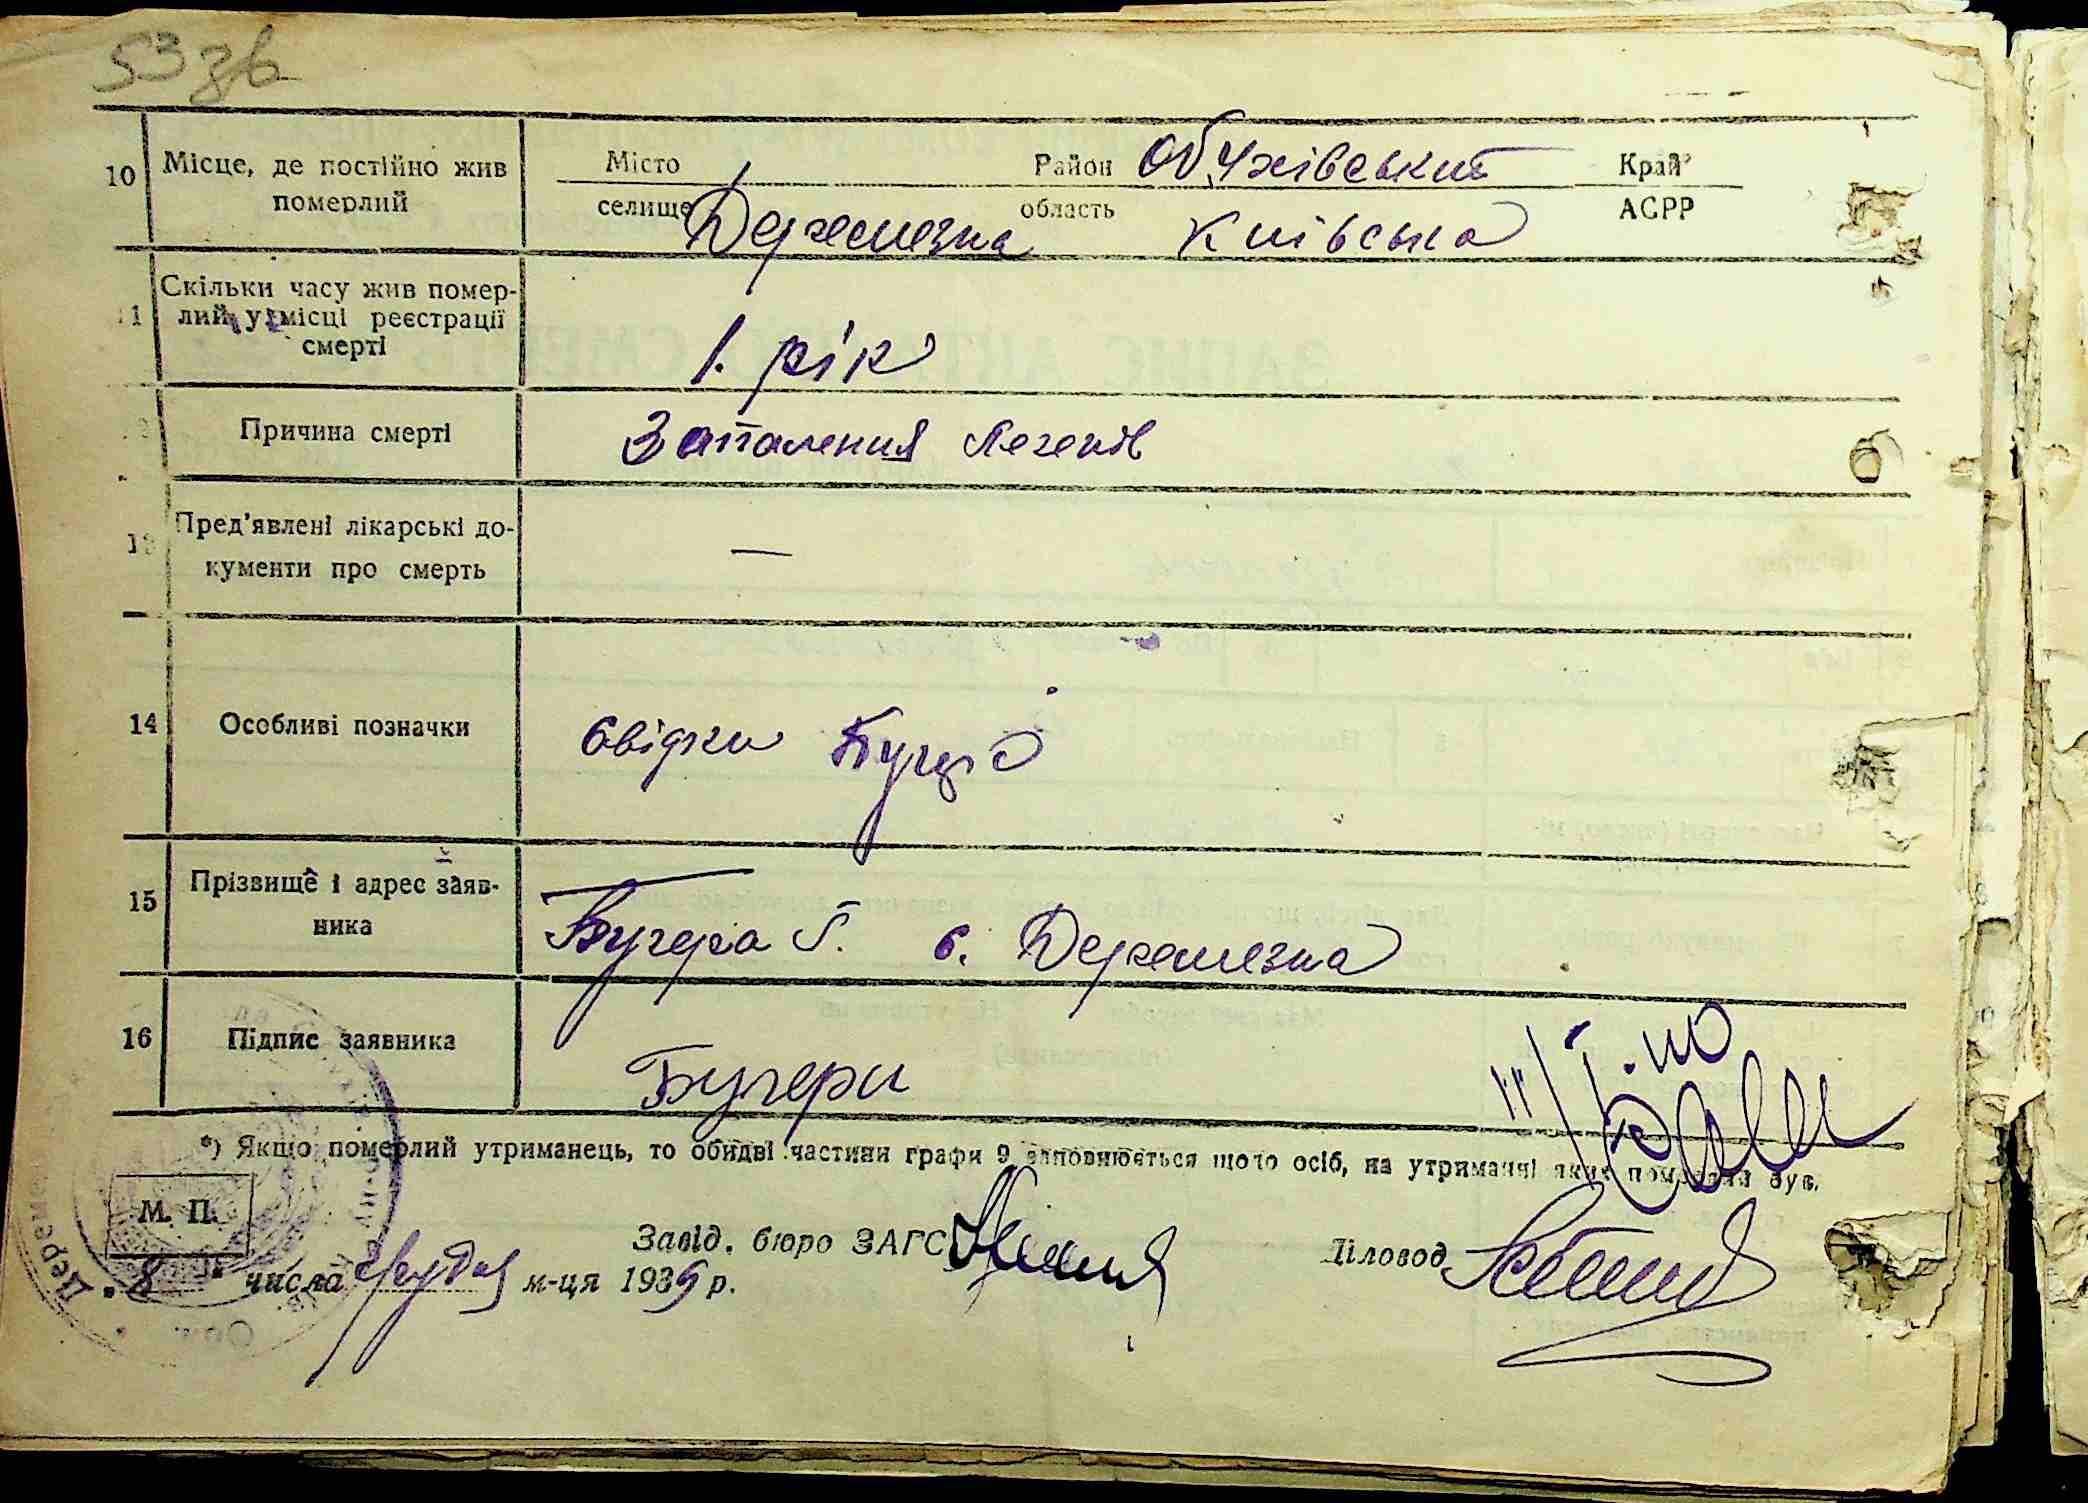 53 зв
10 Місце, де постійно жив померлий
Місто Район Обухівський Край
селище Деремезна область Київська АСРР
11 Скільки часу жив померлий у місці реєстрації смерті
1. рік
Причина смерті
Запалення легенів
13 Пред'явлені лікарські документи про смерть
—
14 Особливі позначки
свідки
15 Прізвище і адрес заявника
Бугера Г. с. Деремезна
16 Підпис заявника
Бугери
*) Якщо померлий утриманець, то обидві частини графи 9 заповнюється щодо осіб, на утриманні яких померлий був.
М. П.
Завід. бюро ЗАГС
Діловод
"8" числа грудня м-ця 1935 р.